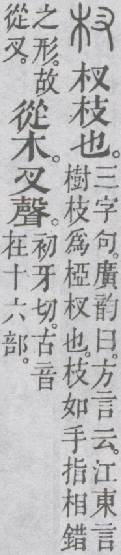 杈 杈枝也。
三字句。廣韵曰。方言云。江東言
樹枝爲椏杈也。枝如手指相錯
之形。故
從叉。
從木。叉聲。
初牙切。古音
在十六部。